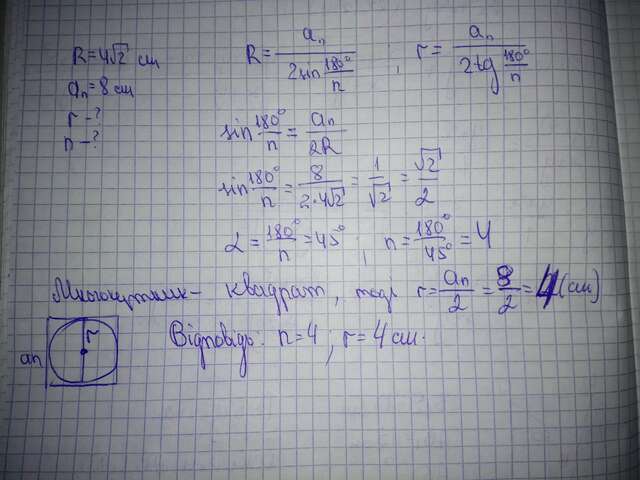 R = 4√2 см
aₙ = 8 см
r - ?
n - ?
R = aₙ / (2 sin 180°/n) , r = aₙ / (2 tg 180°/n)
sin 180°/n = aₙ / 2R
sin 180°/n = 8 / (2·4√2) = 1/√2 = √2/2
α = 180°/n = 45° , n = 180°/45° = 4
Многокутник - квадрат, тоді r = aₙ/2 = 8/2 = 4 (см)
Відповідь: n = 4 ; r = 4 см.
r
aₙ